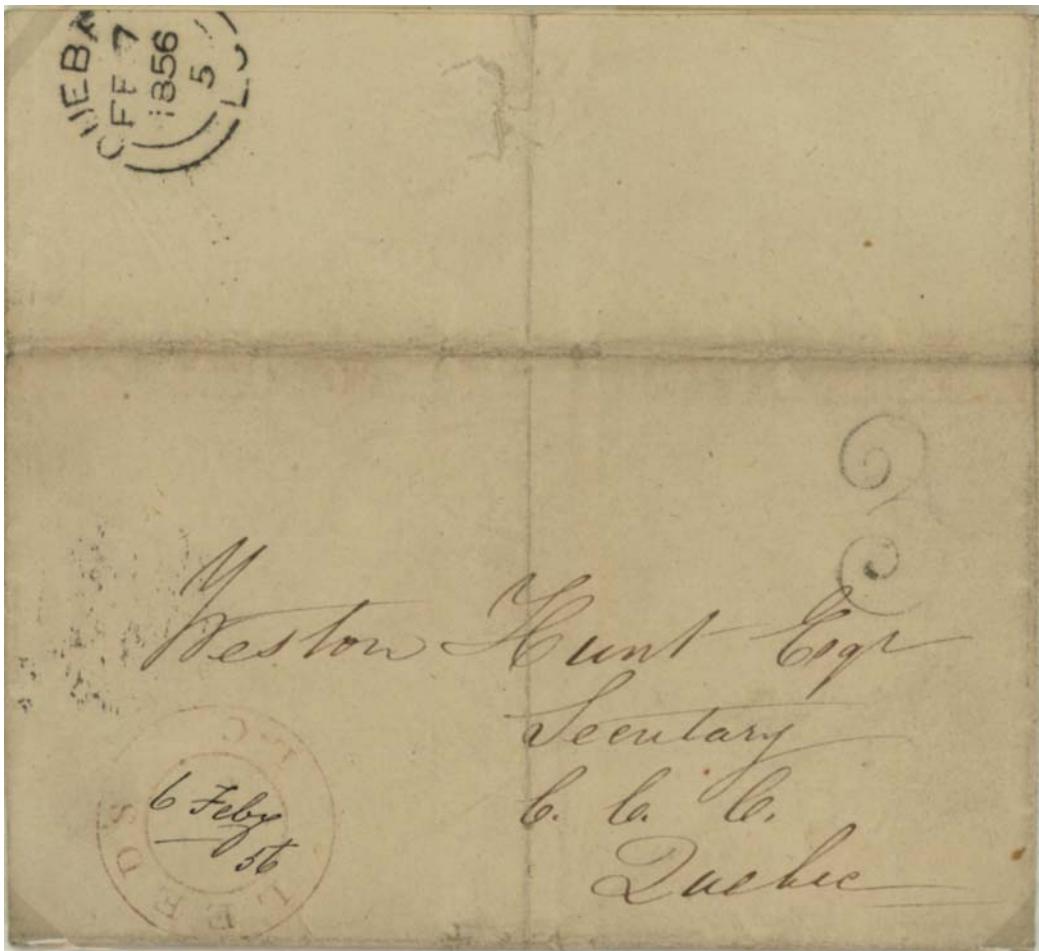 QUEBA
FE 7
1856
5
L.C
Weston Hunt Esqr
Secretary
C. C. C.
Quebec
LEEDS
L.C
6 Feby
56